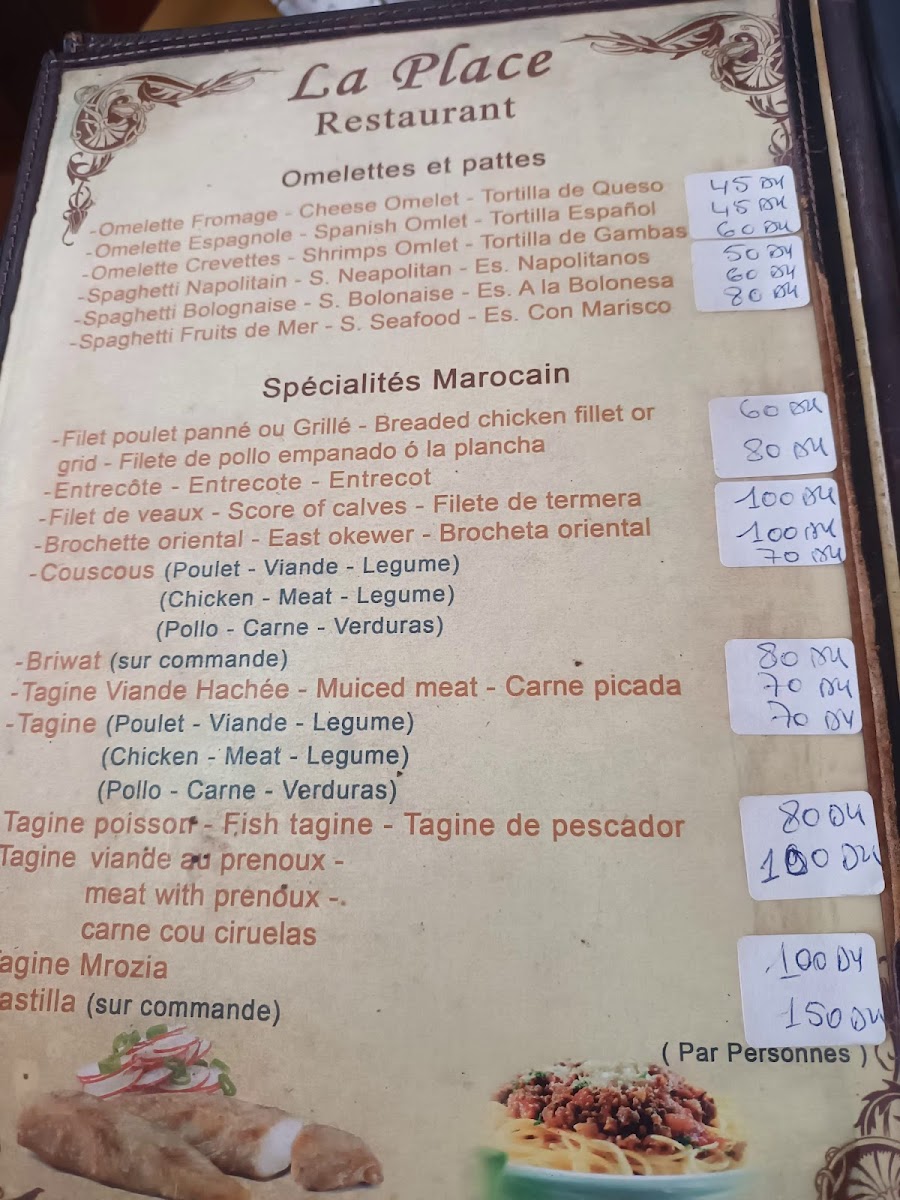 La Place
Restaurant
Omelettes et pattes
-Omelette Fromage - Cheese Omelet - Tortilla de Queso 45 DH
-Omelette Espagnole - Spanish Omlet - Tortilla Español 45 DH
-Omelette Crevettes - Shrimps Omlet - Tortilla de Gambas 60 DH
-Spaghetti Napolitain - S. Neapolitan - Es. Napolitanos 50 DH
-Spaghetti Bolognaise - S. Bolonaise - Es. A la Bolonesa 60 DH
-Spaghetti Fruits de Mer - S. Seafood - Es. Con Marisco 80 DH
Spécialités Marocain
-Filet poulet panné ou Grillé - Breaded chicken fillet or 60 DH
grid - Filete de pollo empanado ó la plancha
-Entrecôte - Entrecote - Entrecot 80 DH
-Filet de veaux - Score of calves - Filete de termera 100 DH
-Brochette oriental - East okewer - Brocheta oriental 100 DH
-Couscous (Poulet - Viande - Legume) 70 DH
(Chicken - Meat - Legume)
(Pollo - Carne - Verduras)
-Briwat (sur commande) 80 DH
-Tagine Viande Hachée - Muiced meat - Carne picada 70 DH
-Tagine (Poulet - Viande - Legume) 70 DH
(Chicken - Meat - Legume)
(Pollo - Carne - Verduras)
Tagine poisson - Fish tagine - Tagine de pescador 80 DH
Tagine viande au prenoux - 100 DH
meat with prenoux -
carne cou ciruelas
agine Mrozia 100 DH
astilla (sur commande) 150 DH
( Par Personnes )